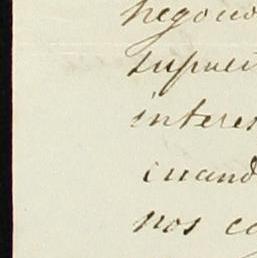 negocio
supues
interes
cuand
nos co